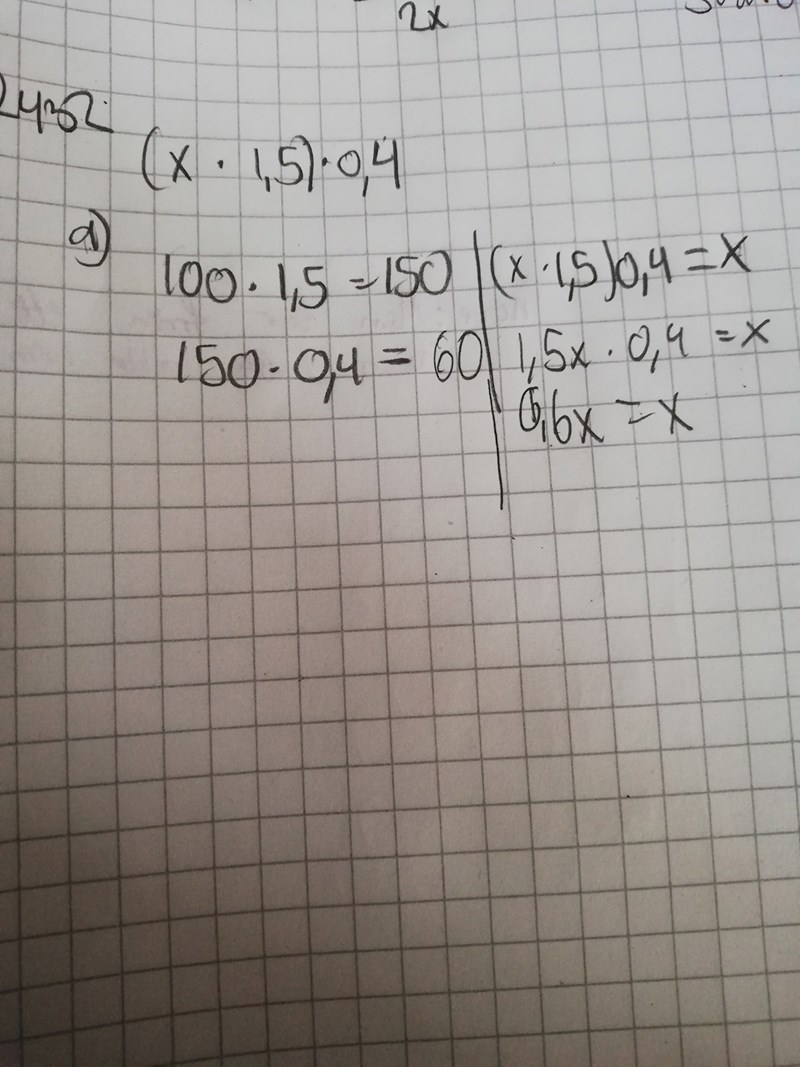 2x
2432
(x · 1,5) · 0,4
a)
100 · 1,5 = 150
150 · 0,4 = 60
(x · 1,5)0,4 = x
1,5x · 0,4 = x
0,6x = x